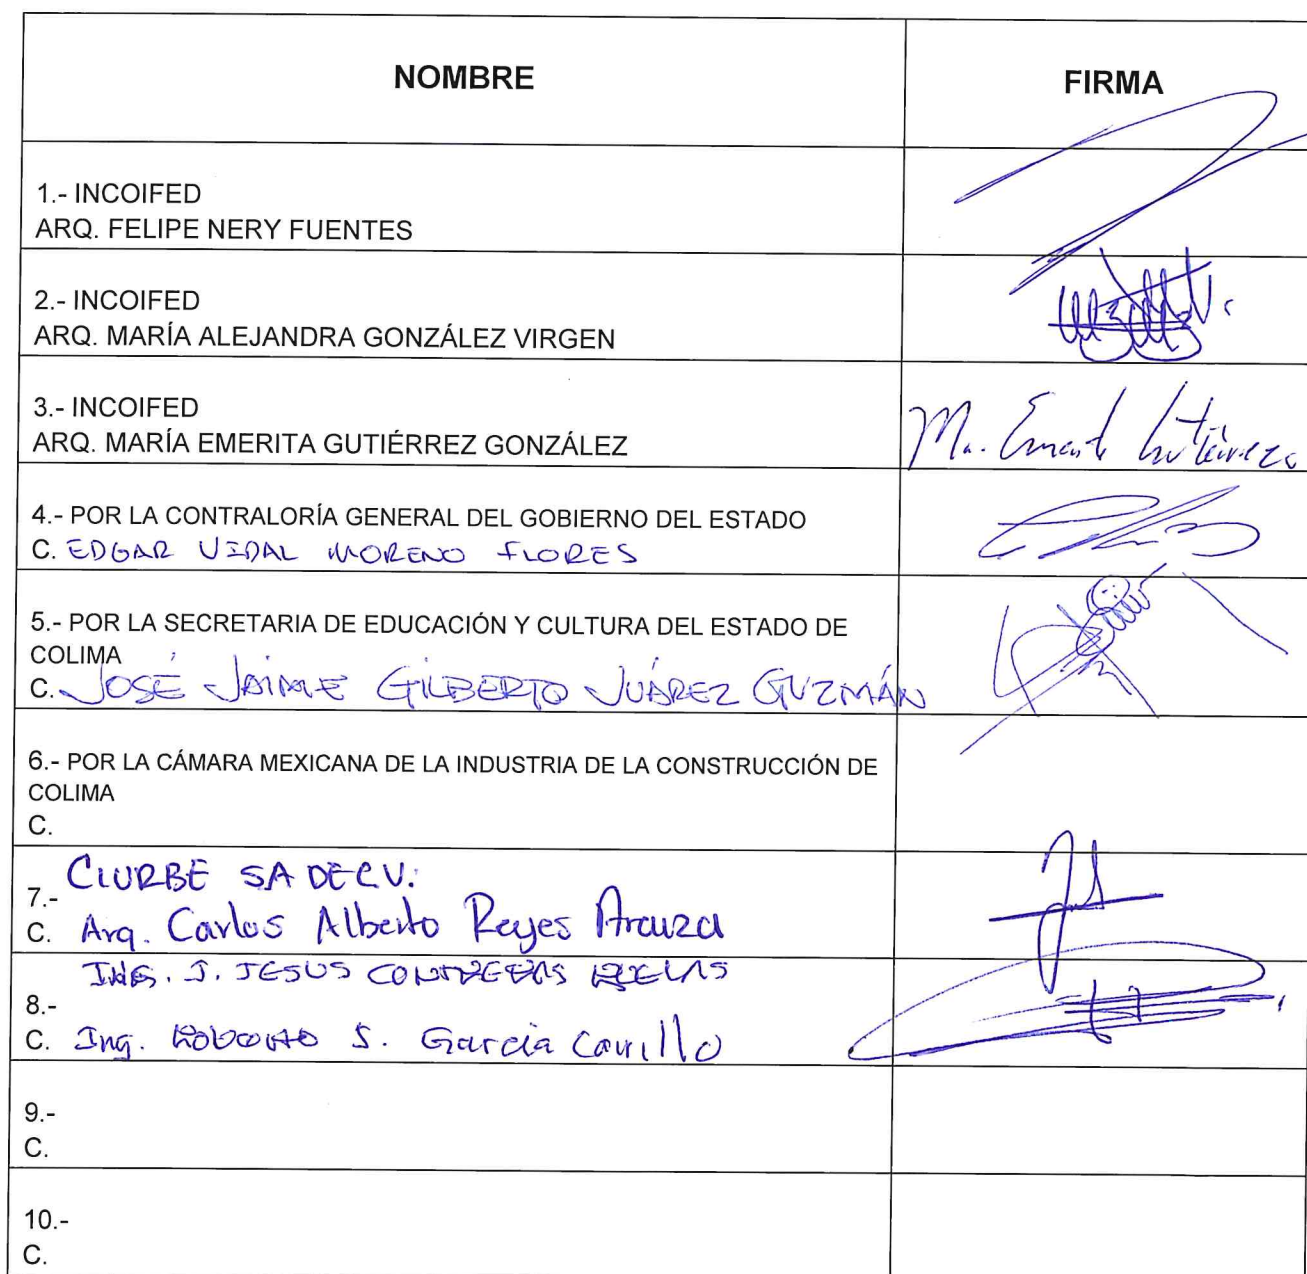 NOMBRE
FIRMA
1.- INCOIFED
ARQ. FELIPE NERY FUENTES
2.- INCOIFED
ARQ. MARÍA ALEJANDRA GONZÁLEZ VIRGEN
3.- INCOIFED
ARQ. MARÍA EMERITA GUTIÉRREZ GONZÁLEZ
Ma. Gutiérrez
4.- POR LA CONTRALORÍA GENERAL DEL GOBIERNO DEL ESTADO
C. EDGAR VIDAL MORENO FLORES
5.- POR LA SECRETARIA DE EDUCACIÓN Y CULTURA DEL ESTADO DE
COLIMA
C. JOSÉ JAIME GILBERTO JUÁREZ GUZMÁN
6.- POR LA CÁMARA MEXICANA DE LA INDUSTRIA DE LA CONSTRUCCIÓN DE
COLIMA
C.
CIURBE SA DE CV.
7.-
C. Arq. Carlos Alberto Reyes Arauza
ING. J. JESUS CONTRERAS
8.-
C. Ing. Roberto S. García Carrillo
9.-
C.
10.-
C.